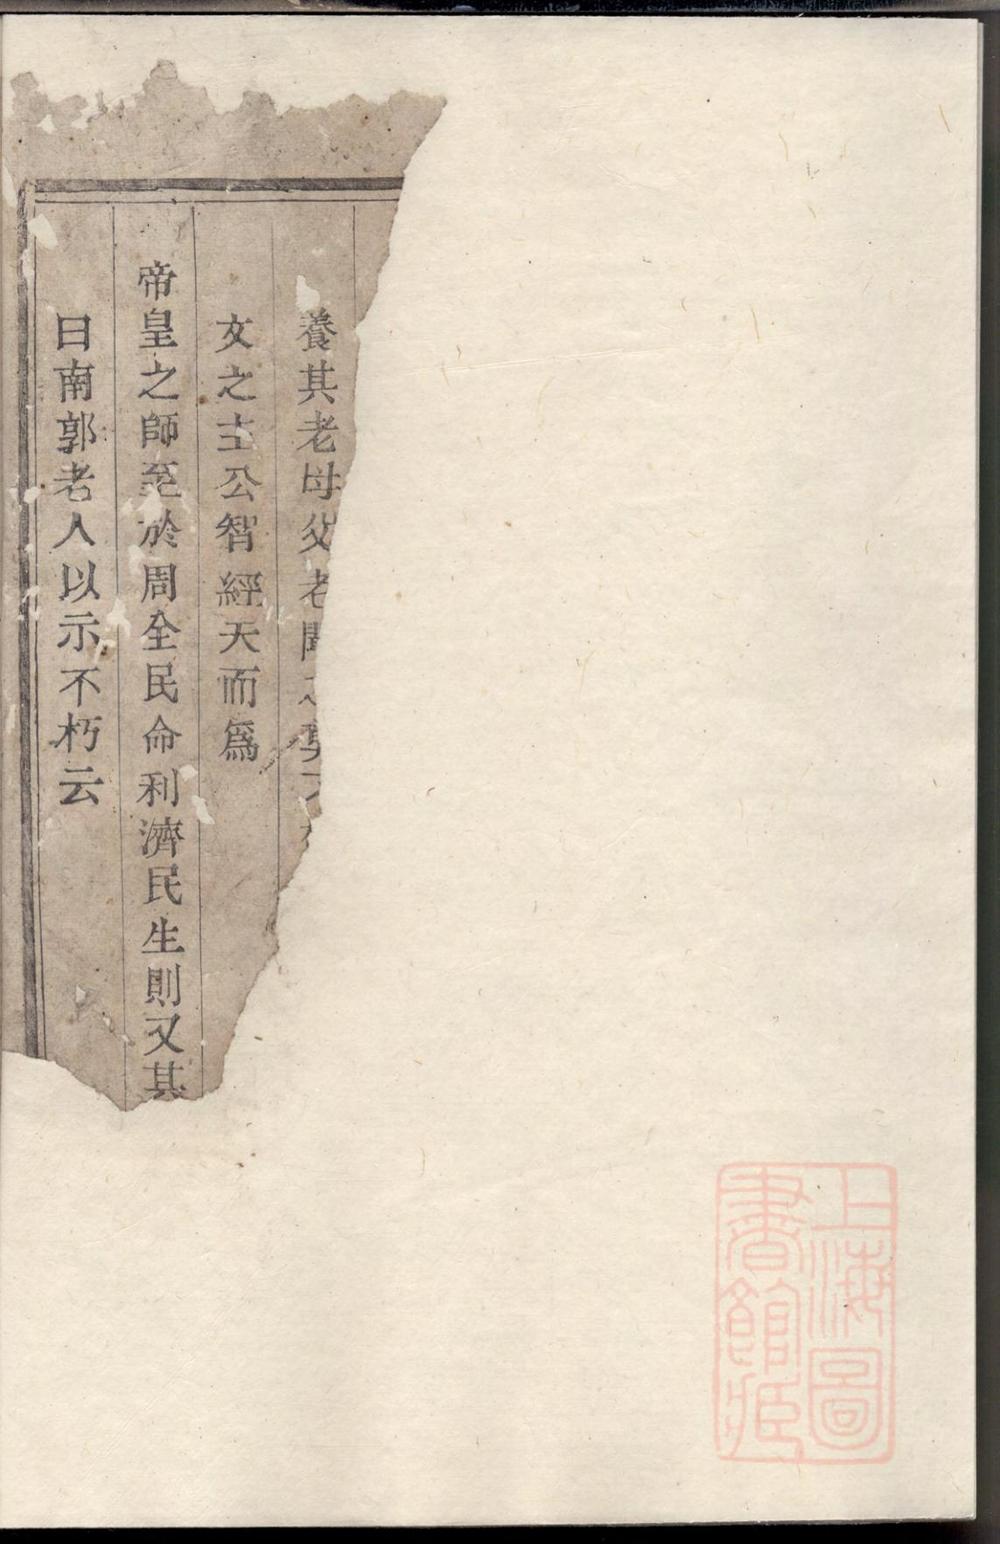 養其老母父老聞之
文之士公智經天而爲
帝皇之師至於周全民命利濟民生則又其
曰南郭老人以示不朽云
上海圖
書館藏